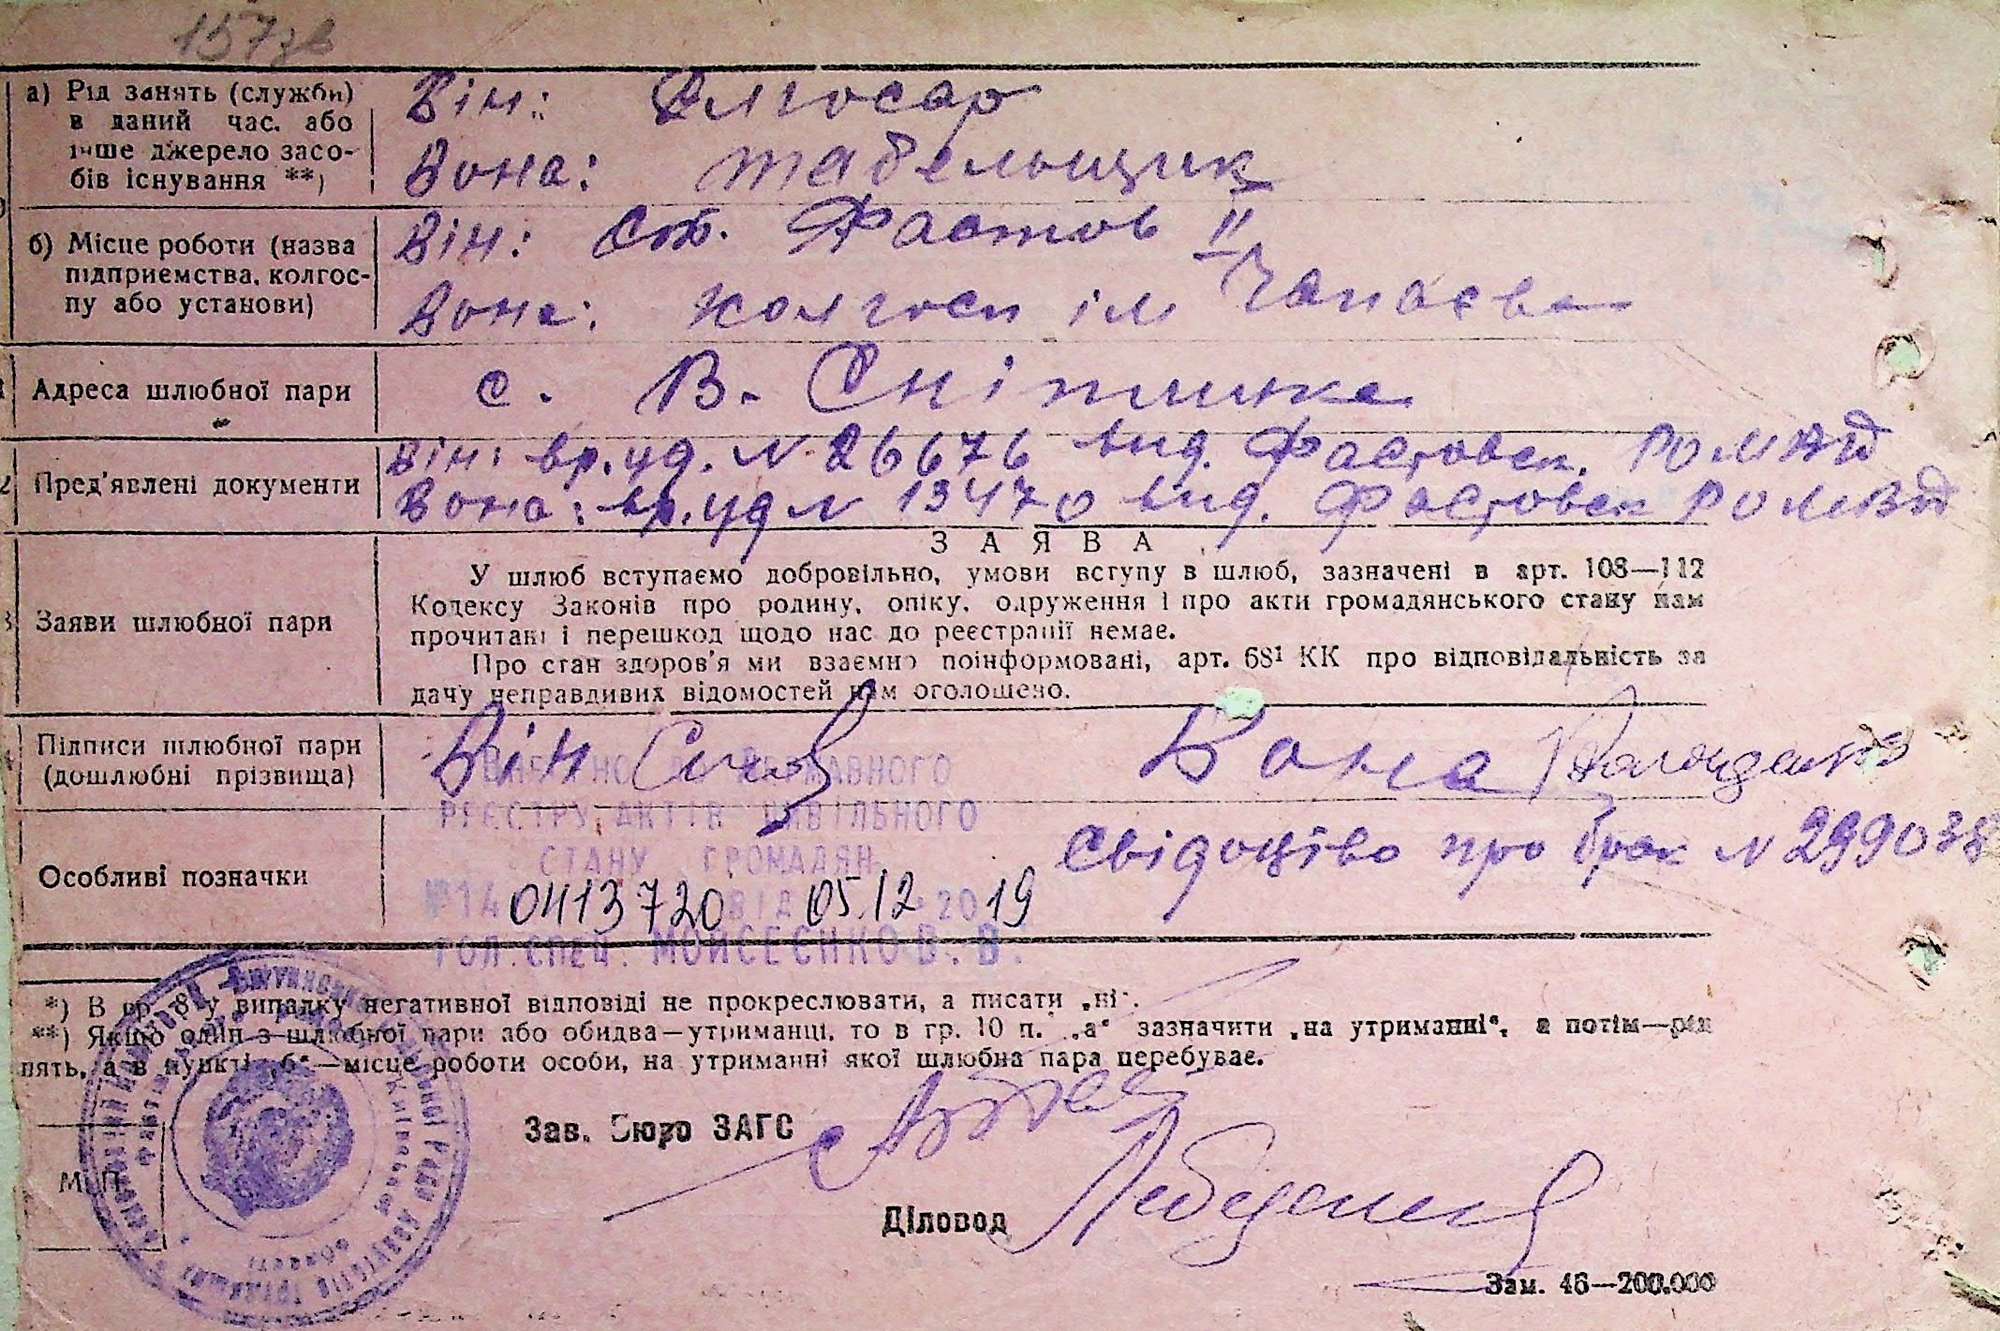 157зв
а) Рід занять (служби)
в даний час. або
інше джерело засо-
бів існування **)
Він: Слюсар
Вона: табельщик
б) Місце роботи (назва
підприємства, колгос-
пу або установи)
Він: ст. Фастов II
Вона: колгосп ім Чапаєва
Адреса шлюбної пари
с. В. Снітинка
Пред'явлені документи
Він: вр. уд. N 26676 вид. Фастовск. РОМВД
Вона: вр. уд N 13470 вид. Фастовск РОМВД
Заяви шлюбної пари
ЗАЯВА
У шлюб вступаємо добровільно, умови вступу в шлюб, зазначені в арт. 108—112
Кодексу Законів про родину, опіку, одруження і про акти громадянського стану нам
прочитані і перешкод щодо нас до реєстрації немає.
Про стан здоров'я ми взаємно поінформовані, арт. 68¹ КК про відповідальність за
дачу неправдивих відомостей нам оголошено.
Підписи шлюбної пари
(дошлюбні прізвища)
Він Вона
ВНЕСЕНО ДО ДЕРЖАВНОГО
РЕЄСТРУ АКТІВ ЦИВІЛЬНОГО
СТАНУ ГРОМАДЯН
№ 140413720 ВІД 05.12 2019
ГОЛ. СПЕЦ. МОЙСЕЄНКО В. В.
Особливі позначки
Свідоцтво про брак N 299038
*) В гр. 8 у випадку негативної відповіді не прокреслювати, а писати „ні".
**) Якщо один з шлюбної пари або обидва—утриманці, то в гр. 10 п. „а" зазначити „на утриманні", а потім—рід
нять, а в пункті „б"—місце роботи особи, на утриманні якої шлюбна пара перебуває.
М. П.
Зав. Бюро ЗАГС
Діловод
Київської
області
Зам. 46—200.000